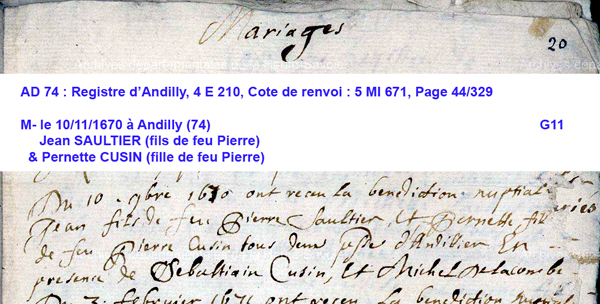 Mariages
20
AD 74 : Registre d'Andilly, 4 E 210, Cote de renvoi : 5 MI 671, Page 44/329
M- le 10/11/1670 à Andilly (74) G11
Jean SAULTIER (fils de feu Pierre)
& Pernette CUSIN (fille de feu Pierre)
Du 10 . 9bre 1670 ont receu la benediction nuptial
Jean fils de feu Pierre Saultier, et Pernette fille
de feu Pierre Cusin tous deux d'Andillier En
presence de Sebastiain Cusin, et Michel Delacombe
Du 3. febvrier 1671 ont receu la benediction